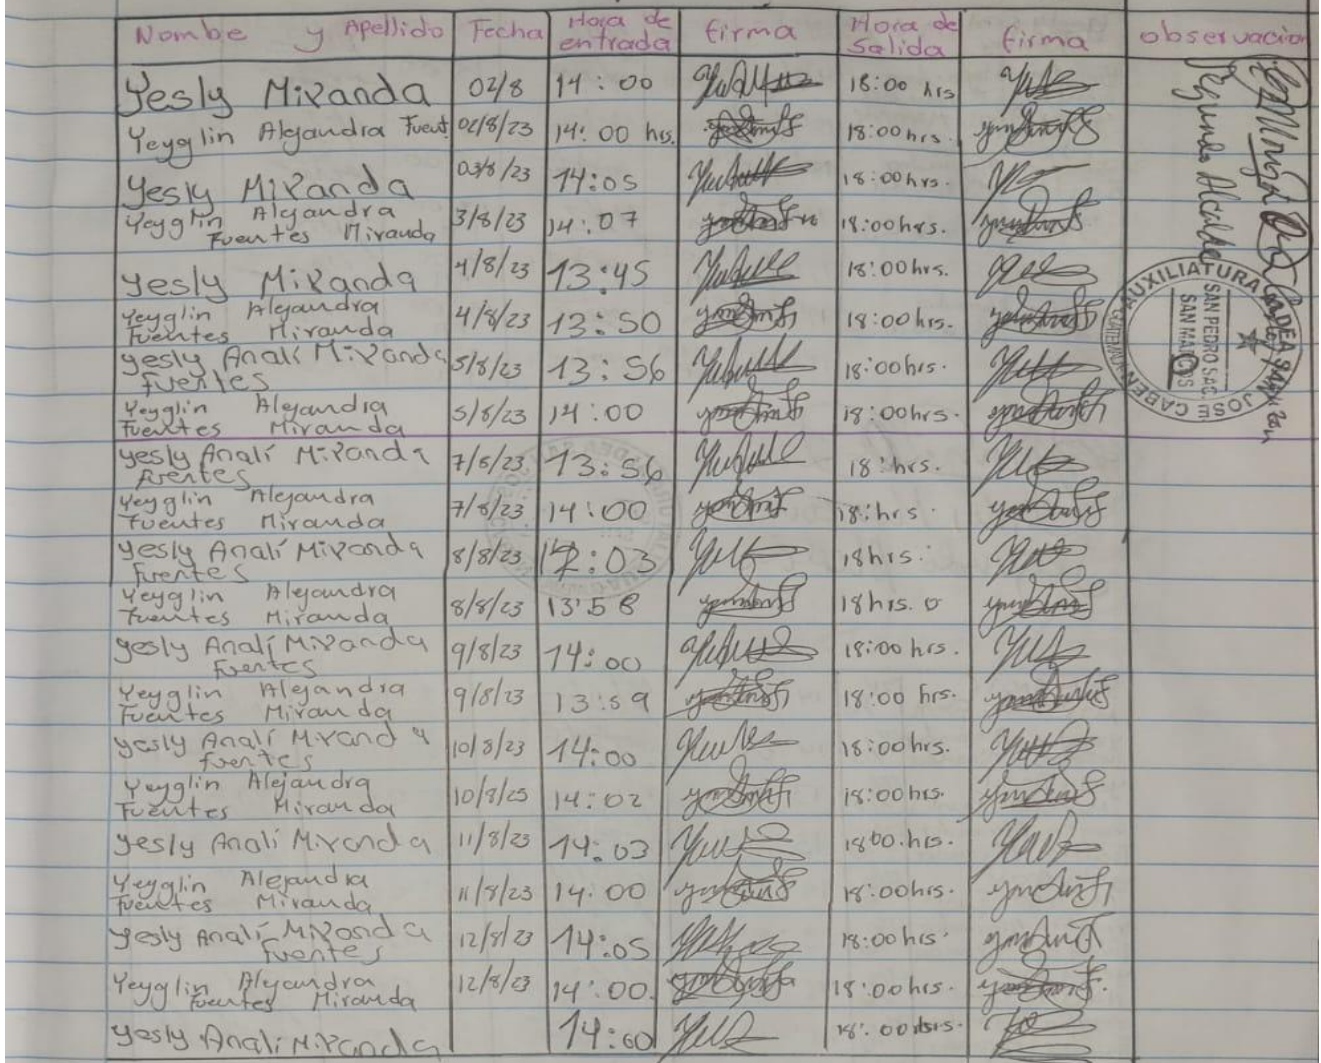 Nombe y Apellido Fecha Hora de entrada firma Hora de Salida firma observacion
Yesly Miranda 02/8 14:00 18:00 hrs
Yeyglin Alejandra Fuent 02/8/23 14:00 hrs. 18:00 hrs.
Yesly Miranda 03/8/23 14:05 18:00 hrs.
Yeyglin Alejandra Fuentes Miranda 3/8/23 14:07 18:00 hrs.
Yesly Miranda 4/8/23 13:45 18:00 hrs.
Yeyglin Alejandra Fuentes Miranda 4/8/23 13:50 18:00 hrs.
yesly Analí Miranda fuentes 5/8/23 13:56 18:00 hrs.
Yeyglin Alejandra Fuentes Miranda 5/8/23 14:00 18:00 hrs.
yesly Analí Miranda fuentes 7/8/23 13:56 18:hrs.
Yeyglin Alejandra Fuentes Miranda 7/8/23 14:00 18:hrs.
yesly Analí Miranda fuentes 8/8/23 :03 18hrs.
Yeyglin Alejandra Fuentes Miranda 8/8/23 13:58 18hrs.
yesly Analí Miranda fuentes 9/8/23 14:00 18:00 hrs.
Yeyglin Alejandra Fuentes Miranda 9/8/23 13:59 18:00 hrs.
yesly Analí Miranda fuentes 10/8/23 14:00 18:00 hrs.
Yeyglin Alejandra Fuentes Miranda 10/8/23 14:02 18:00 hrs.
yesly Analí Miranda 11/8/23 14:03 1800.hrs.
Yeyglin Alejandra Fuentes Miranda 11/8/23 14:00 18:00 hrs.
yesly Analí Miranda fuentes 12/8/23 14:05 18:00 hrs.
Yeyglin Alejandra Fuentes Miranda 12/8/23 14:00. 18:00 hrs.
yesly Analí Miranda 14:00 18:00
Segundo Alcalde
AUXILIATURA
SAN PEDRO SAC.
SAN MARCOS
SAN JOSE CABEN